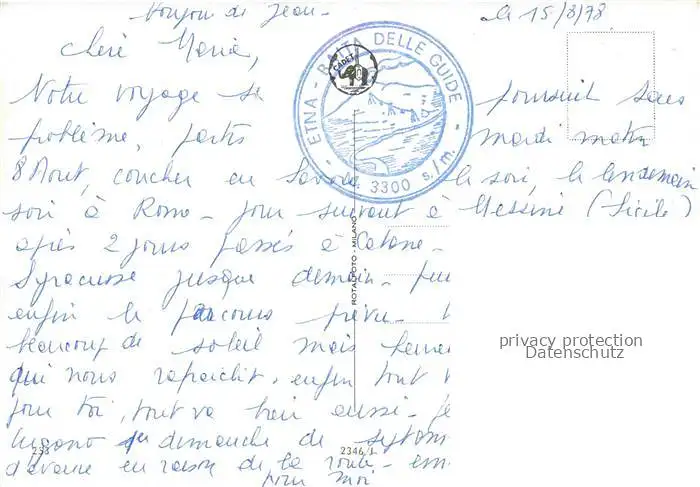 Bonjour de Jean - le 15/8/78
Chère Maria,
Notre voyage se poursuit sans
problème, partis mardi matin
8 Août, coucher en Savoie le soir, le lendemain
soir à Rome - jour suivant à Messine (Sicile)
après 2 jours passés à Catane -
Syracusse jusque demain -
enfin le parcours prévu -
beaucoup de soleil mais
qui nous rafraichit. enfin tout
pour toi, tout va bien aussi -
Lugano dimanche de
d'avance en raison de la route -
pour moi
ETNA - BAITA DELLE GUIDE - 3300 s./m.
CADET
ROTALFOTO - MILANO
233
2346/L
privacy protection
Datenschutz